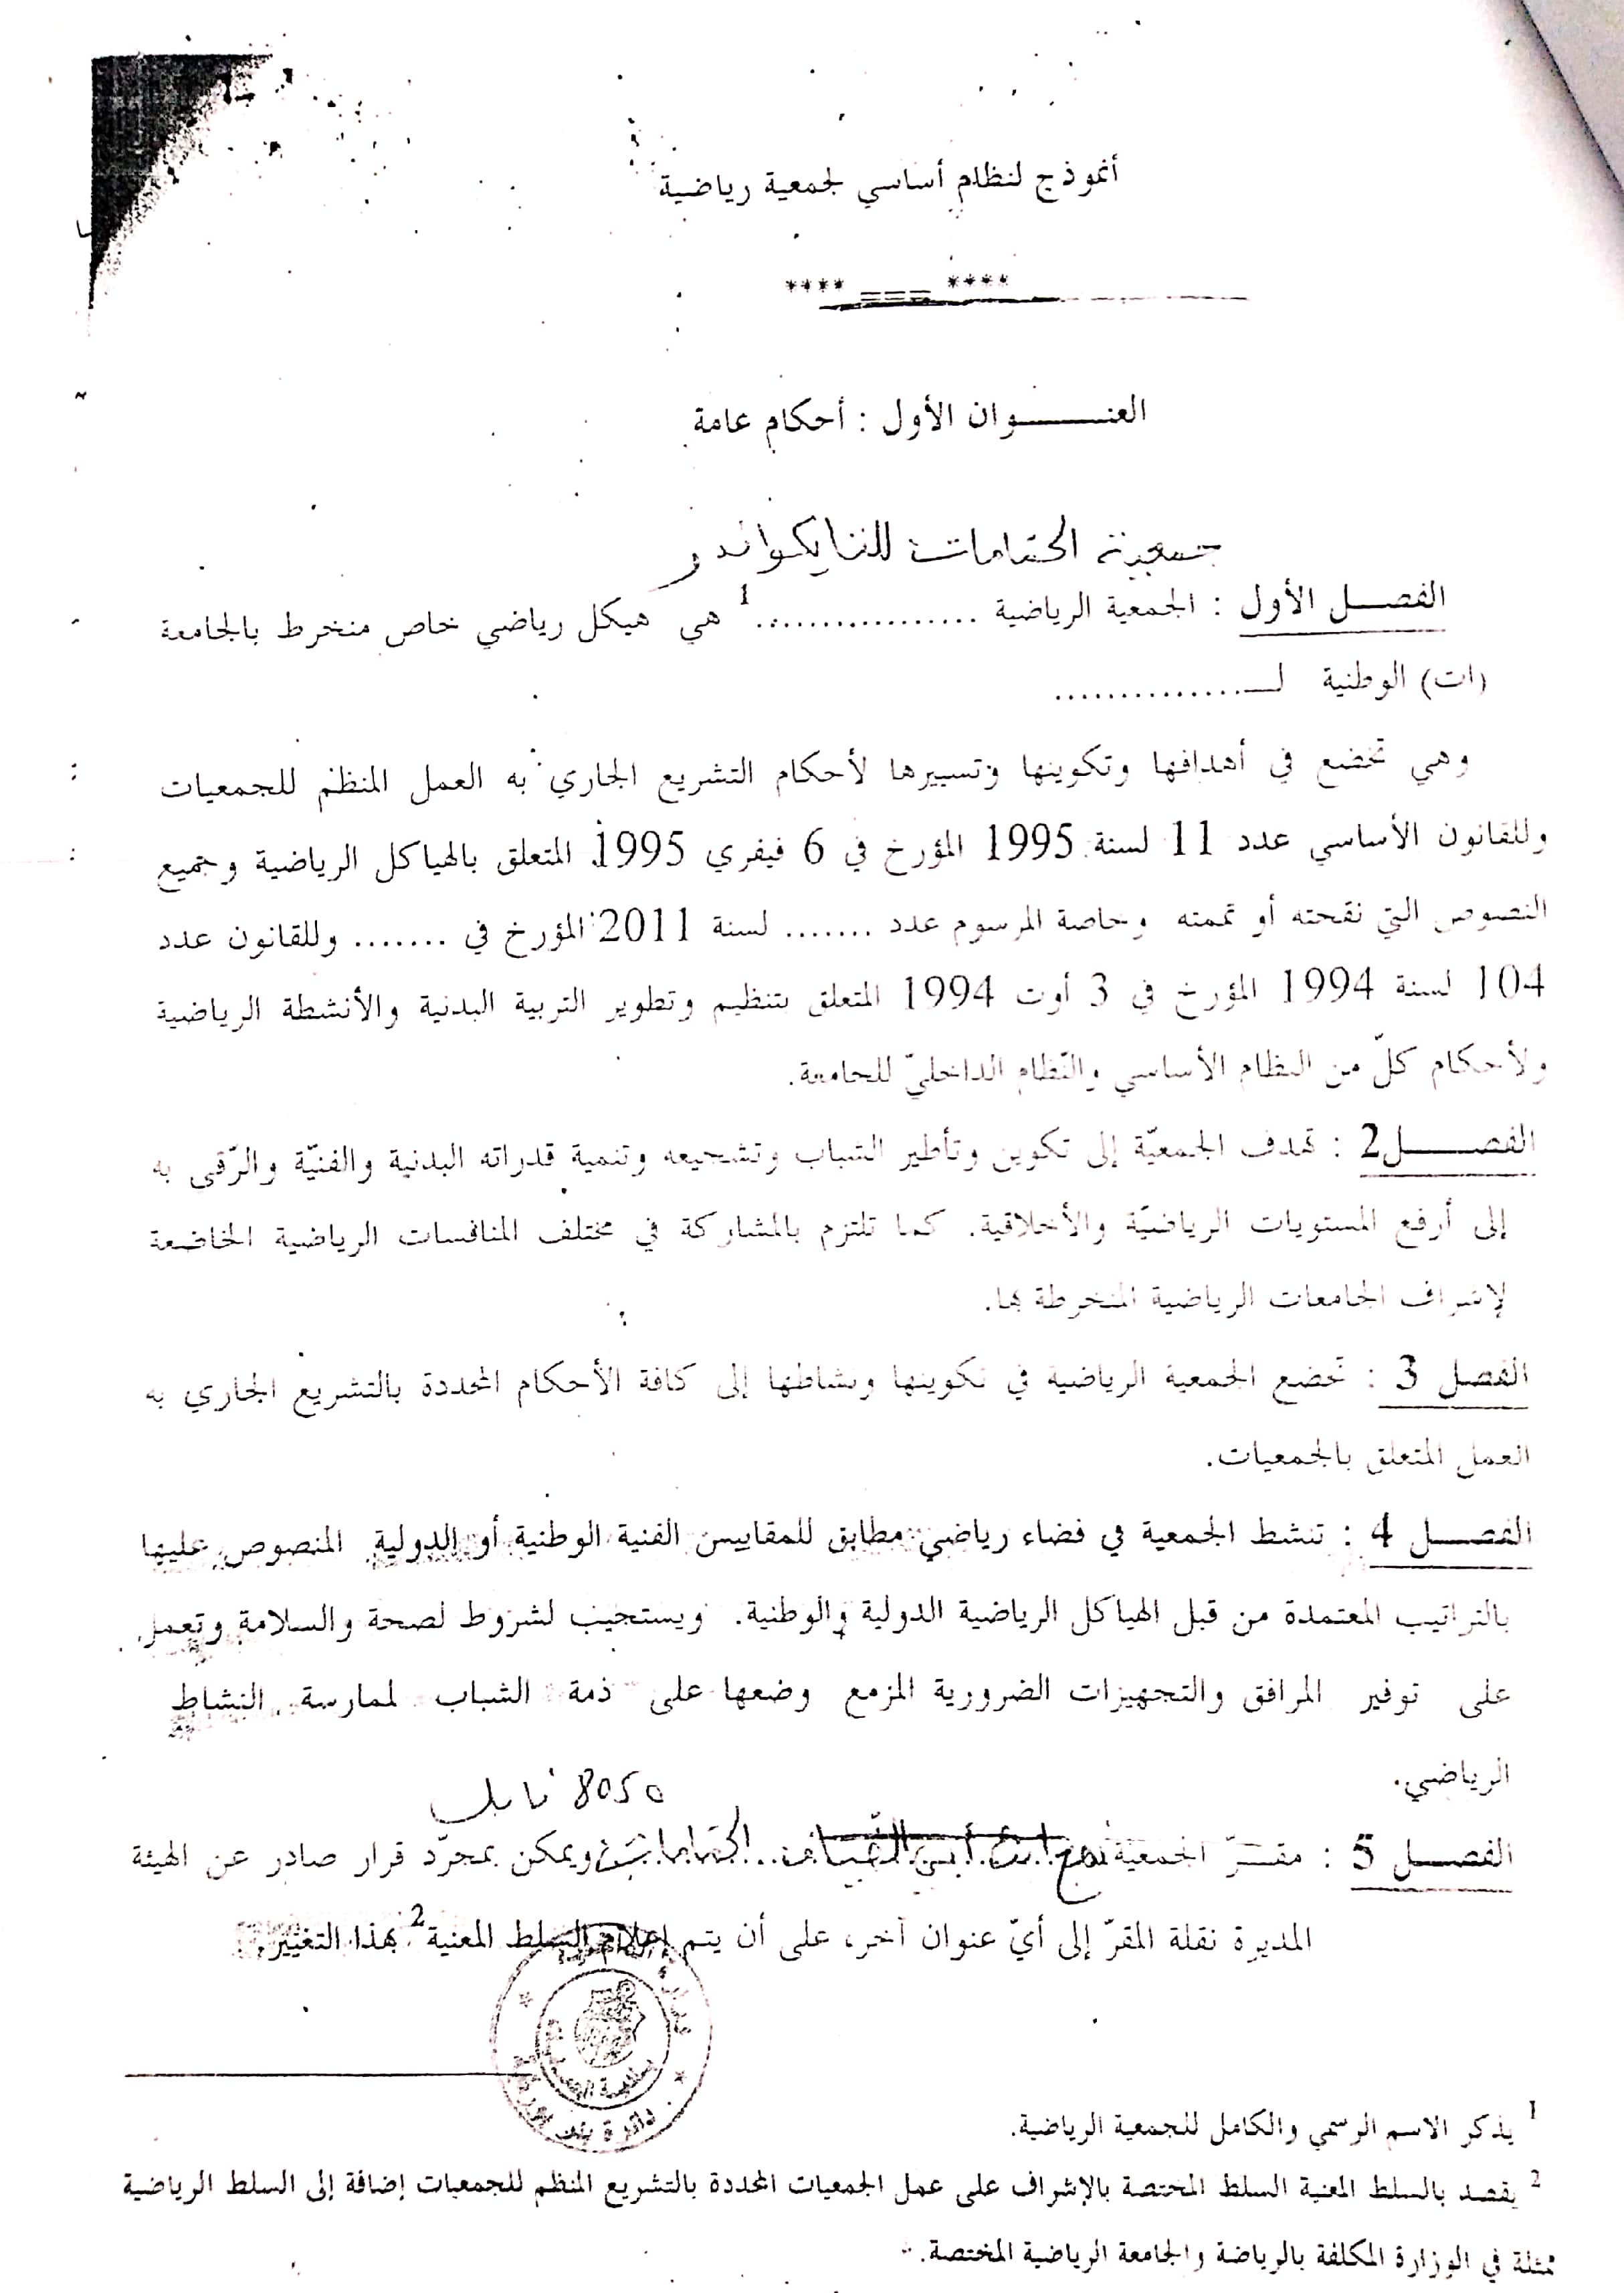 أنموذج لنظام أساسي لجمعية رياضية
**** === ****
العنـــــوان الأول : أحكام عامة
جمعية الحمامات للتايكواندو
الفصــل الأول : الجمعية الرياضية .................1 هي هيكل رياضي خاص منخرط بالجامعة
(ات) الوطنية لـ...............
وهي تخضع في أهدافها وتكوينها وتسييرها لأحكام التشريع الجاري به العمل المنظم للجمعيات
وللقانون الأساسي عدد 11 لسنة 1995 المؤرخ في 6 فيفري 1995 المتعلق بالهياكل الرياضية وجميع
النصوص التي نقحته أو تممته وخاصة المرسوم عدد ....... لسنة 2011 المؤرخ في ....... وللقانون عدد
104 لسنة 1994 المؤرخ في 3 أوت 1994 المتعلق بتنظيم وتطوير التربية البدنية والأنشطة الرياضية
ولأحكام كلّ من النظام الأساسي والنّظام الداخليّ للجامعة.
الفصــــل2 : تهدف الجمعيّة إلى تكوين وتأطير الشباب وتشجيعه وتنمية قدراته البدنية والفنيّة والرّقي به
إلى أرفع المستويات الرياضيّة والأخلاقية. كما تلتزم بالمشاركة في مختلف المنافسات الرياضية الخاضعة
لإشراف الجامعات الرياضية المنخرطة بها.
الفصل 3 : تخضع الجمعية الرياضية في تكوينها ونشاطها إلى كافة الأحكام المحددة بالتشريع الجاري به
العمل المتعلق بالجمعيات.
الفصــل 4 : تنشط الجمعية في فضاء رياضي مطابق للمقاييس الفنية الوطنية أو الدولية المنصوص عليها
بالتراتيب المعتمدة من قبل الهياكل الرياضية الدولية والوطنية. ويستجيب لشروط لصحة والسلامة وتعمل
على توفير المرافق والتجهيزات الضرورية المزمع وضعها على ذمة الشباب لممارسة النشاط
الرياضي.
8050 نابل
الفصــل 5 : مقــرّ الجمعية الحمامات ويمكن بمجرّد قرار صادر عن الهيئة
المديرة نقلة المقرّ إلى أيّ عنوان آخر، على أن يتم إعلام السلط المعنية2 بهذا التغيير.
1 يذكر الاسم الرسمي والكامل للجمعية الرياضية.
2 يقصد بالسلط المعنية السلط المختصة بالإشراف على عمل الجمعيات المحددة بالتشريع المنظم للجمعيات إضافة إلى السلط الرياضية
ممثلة في الوزارة المكلفة بالرياضة والجامعة الرياضية المختصة.